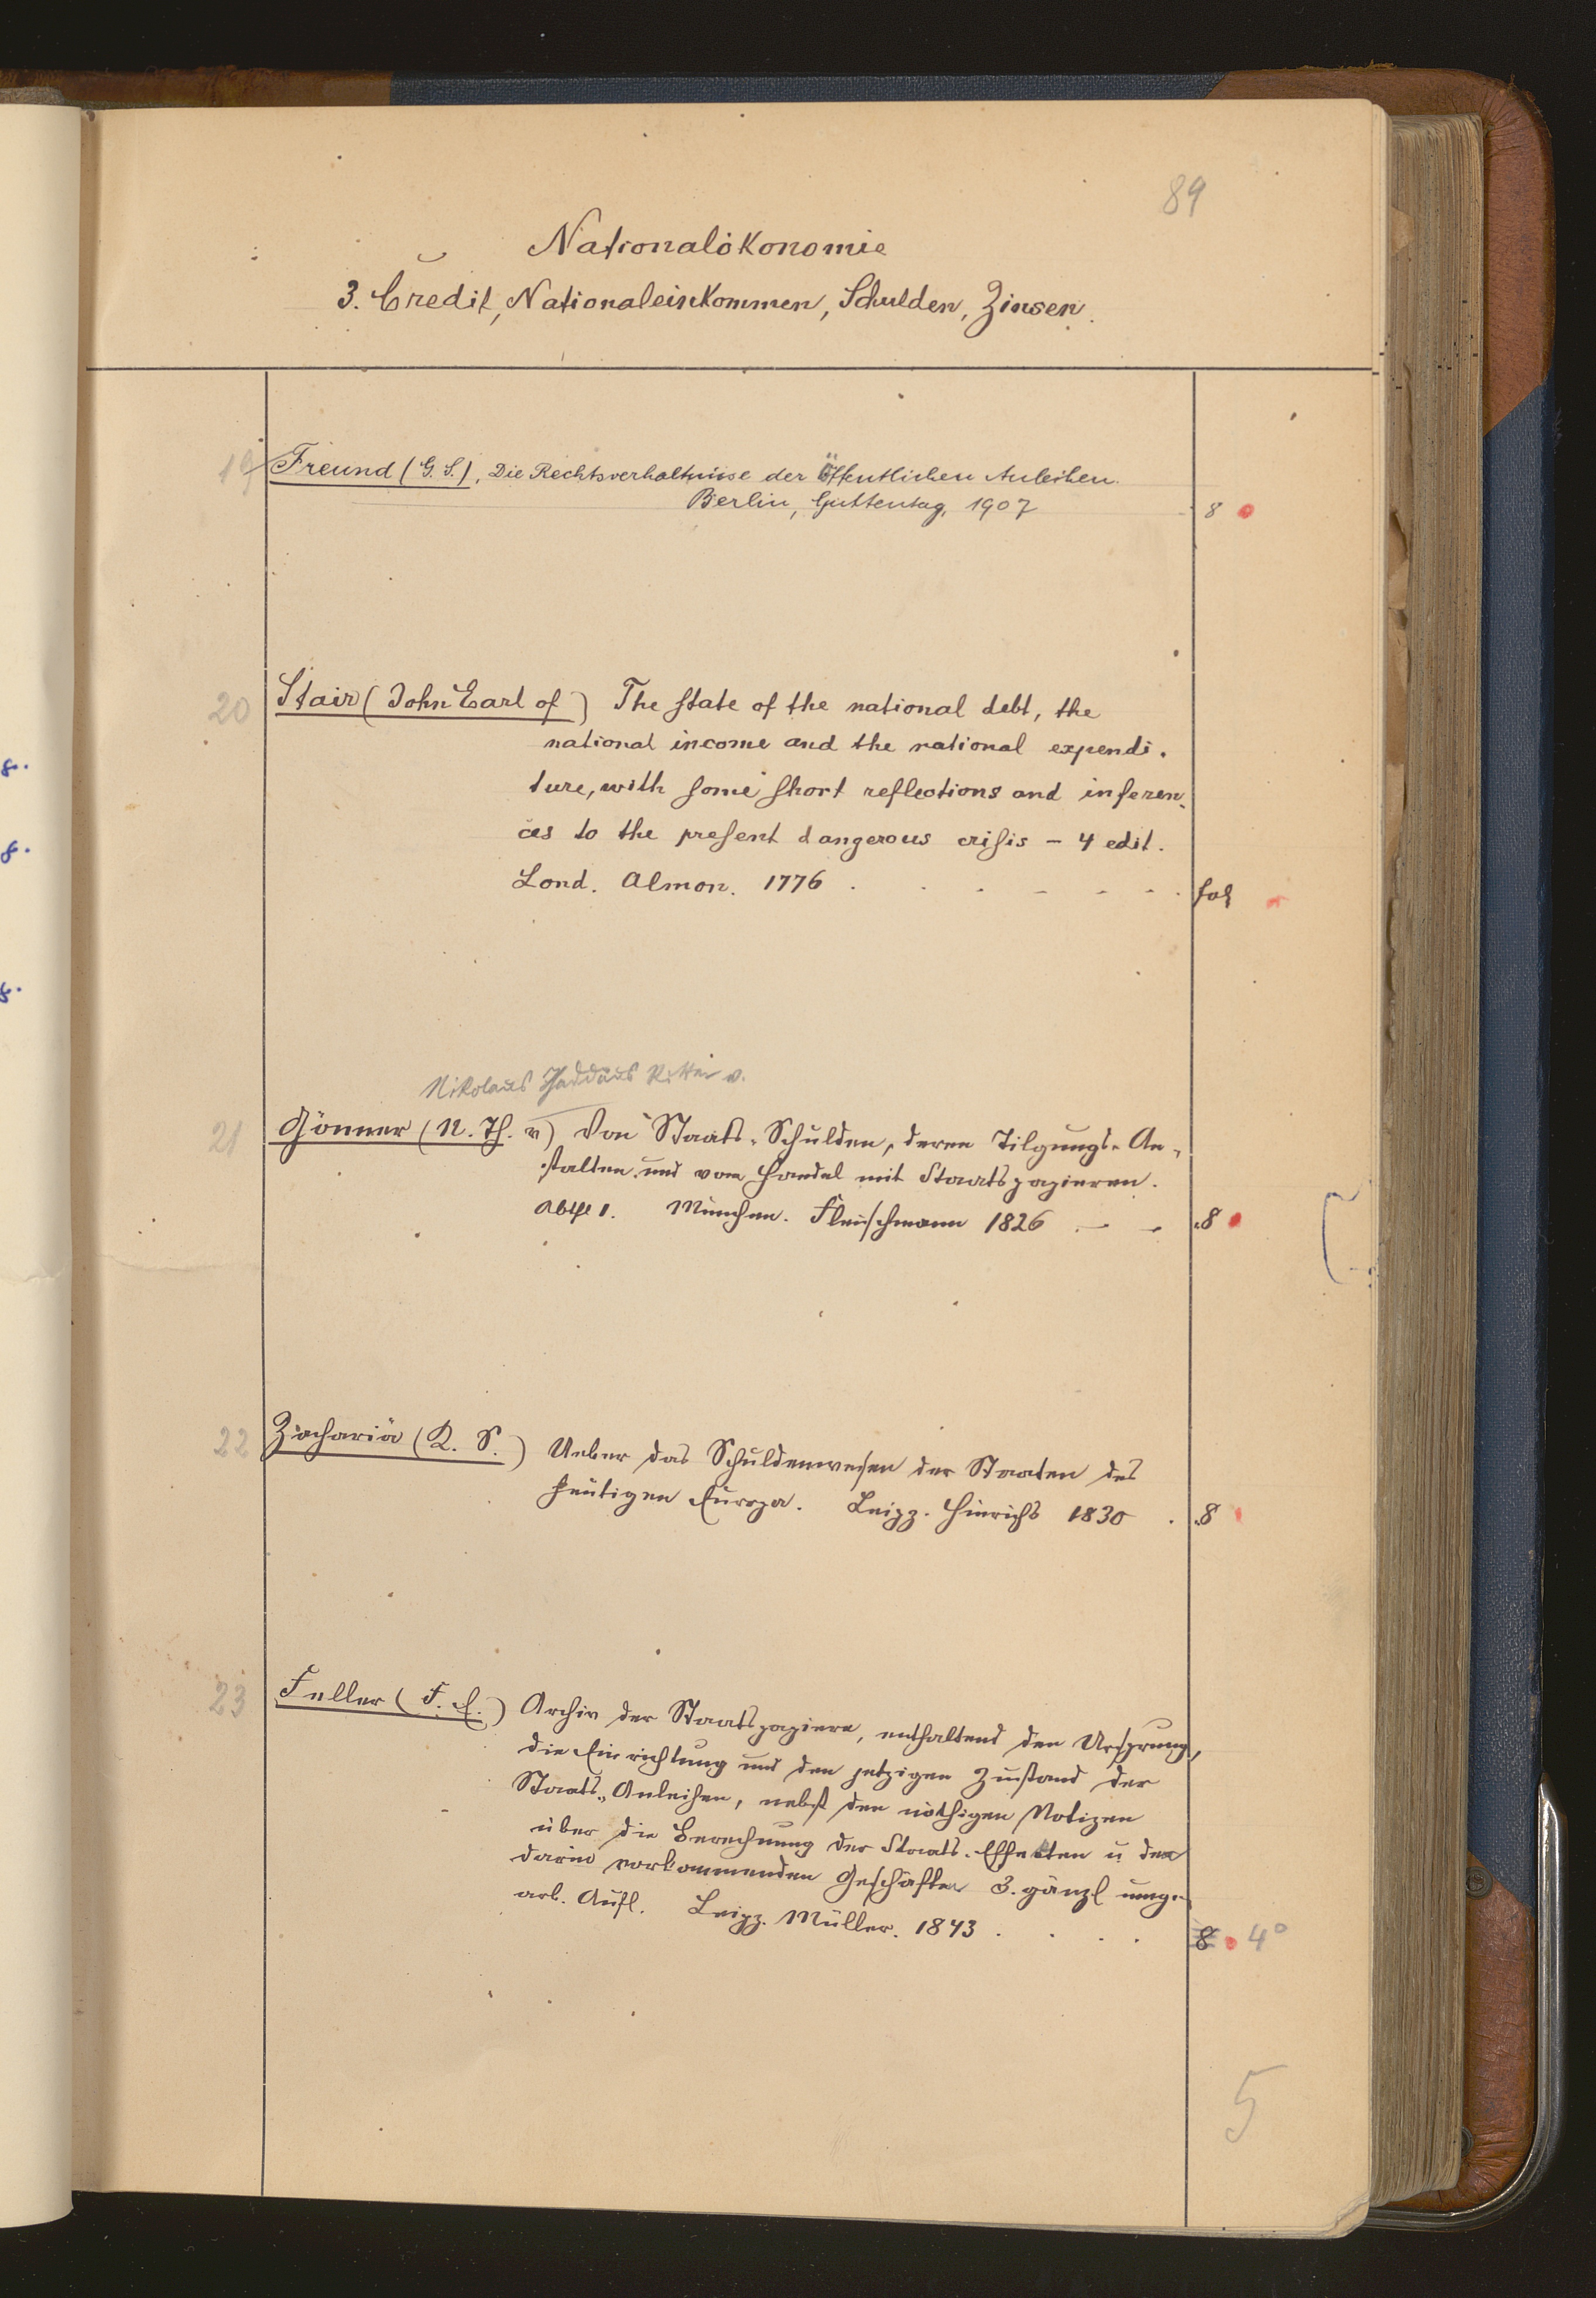 89
Nationalökonomie
3. Credit, Nationaleinkommen, Schulden, Zinsen.
19 Freund (G. S.), Die Rechtsverhältnisse der Öffentlichen Anleihen.
Berlin, Guttentag, 1907 8
20 Stair (John Earl of) The ſtate of the national debt, the
national income and the national expendi-
ture, with ſome ſhort reflections and inferen-
ces to the preſent dangerous criſis – 4 edit.
Lond. Almon. 1776 . . . - - - . fol
Nikolaus Thaddäus Ritter v.
21 Gönner (N. Th. v) Von Staats-Schulden, deren Tilgungs-An-
stalten und vom Handel mit Staatspapieren.
Abth 1. München. Fleischmann 1826 - - 8
22 Zachariä (K. S.) Ueber das Schuldenwesen der Staaten des
heutigen Europa. Leipz. Hinrichs 1830 . 8
23 Feller (F. E.) Archiv der Staatspapiere, enthaltend den Ursprung,
die Einrichtung und den jetzigen Zustand der
Staats-Anleihen, nebst den nöthigen Notizen
über die Berechnung der Staats-Effecten u der
darin vorkommenden Geschäfte 3. gänzl umge-
arb. Aufl. Leipz. Müller. 1843 . . . . 8 4°
5
8.
8.
8.